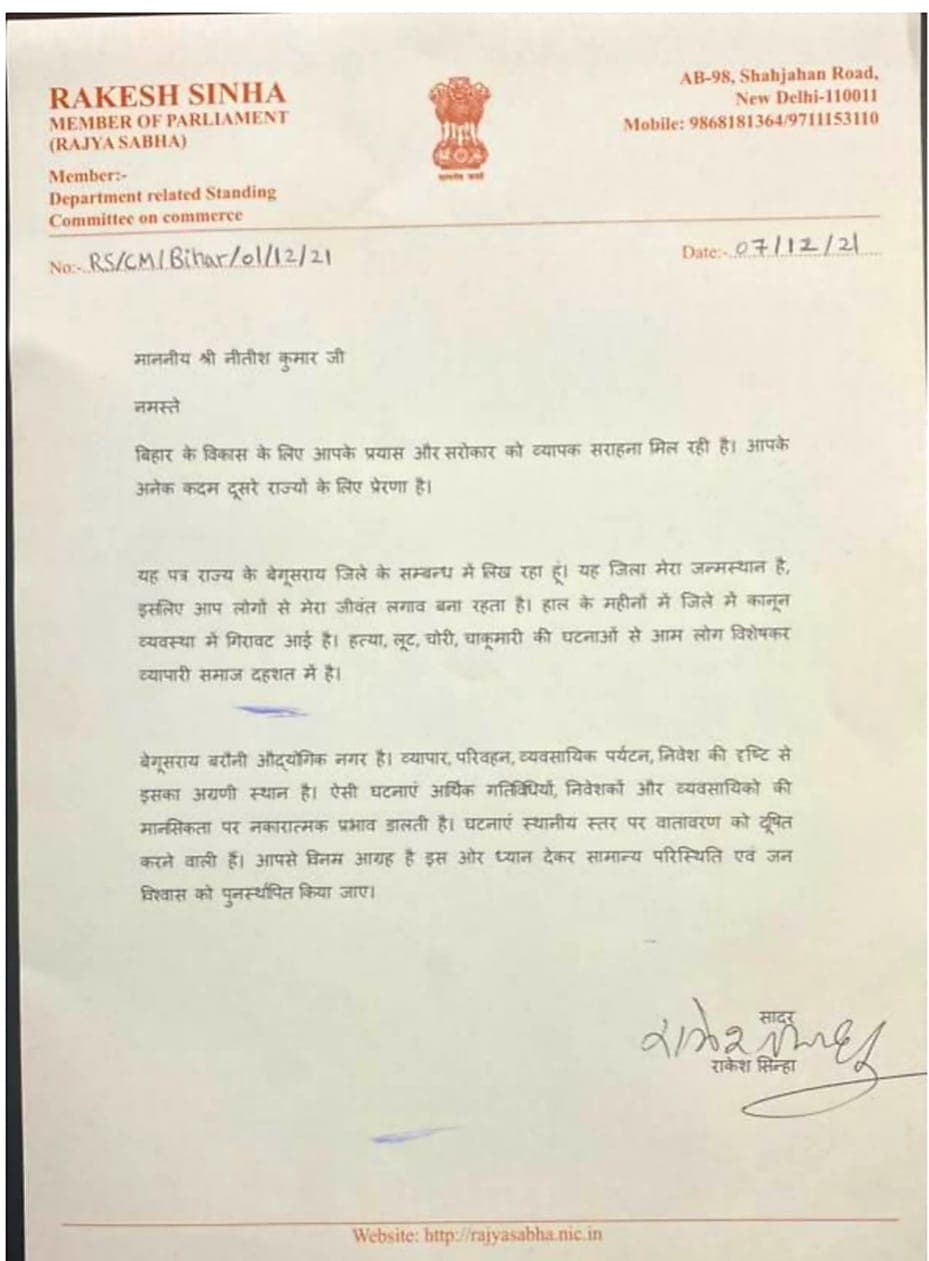 RAKESH SINHA
MEMBER OF PARLIAMENT
(RAJYA SABHA)
Member:-
Department related Standing
Committee on commerce
AB-98, Shahjahan Road,
New Delhi-110011
Mobile: 9868181364/9711153110
सत्यमेव जयते
No:- RS/CM/Bihar/01/12/21
Date:- 07/12/21
माननीय श्री नीतीश कुमार जी
नमस्ते
बिहार के विकास के लिए आपके प्रयास और सरोकार को व्यापक सराहना मिल रही है। आपके
अनेक कदम दूसरे राज्यों के लिए प्रेरणा है।
यह पत्र राज्य के बेगूसराय जिले के सम्बन्ध में लिख रहा हूं। यह जिला मेरा जन्मस्थान है,
इसलिए आप लोगों से मेरा जीवंत लगाव बना रहता है। हाल के महीनों में जिले में कानून
व्यवस्था में गिरावट आई है। हत्या, लूट, चोरी, चाकूमारी की घटनाओं से आम लोग विशेषकर
व्यापारी समाज दहशत में है।
बेगूसराय बरौनी औद्योगिक नगर है। व्यापार, परिवहन, व्यवसायिक पर्यटन, निवेश की दृष्टि से
इसका अग्रणी स्थान है। ऐसी घटनाएं आर्थिक गतिविधियों, निवेशकों और व्यवसायिको की
मानसिकता पर नकारात्मक प्रभाव डालती है। घटनाएं स्थानीय स्तर पर वातावरण को दूषित
करने वाली हैं। आपसे विनम्र आग्रह है इस ओर ध्यान देकर सामान्य परिस्थिति एवं जन
विश्वास को पुनर्स्थापित किया जाए।
सादर
राकेश सिन्हा
Website: http://rajyasabha.nic.in